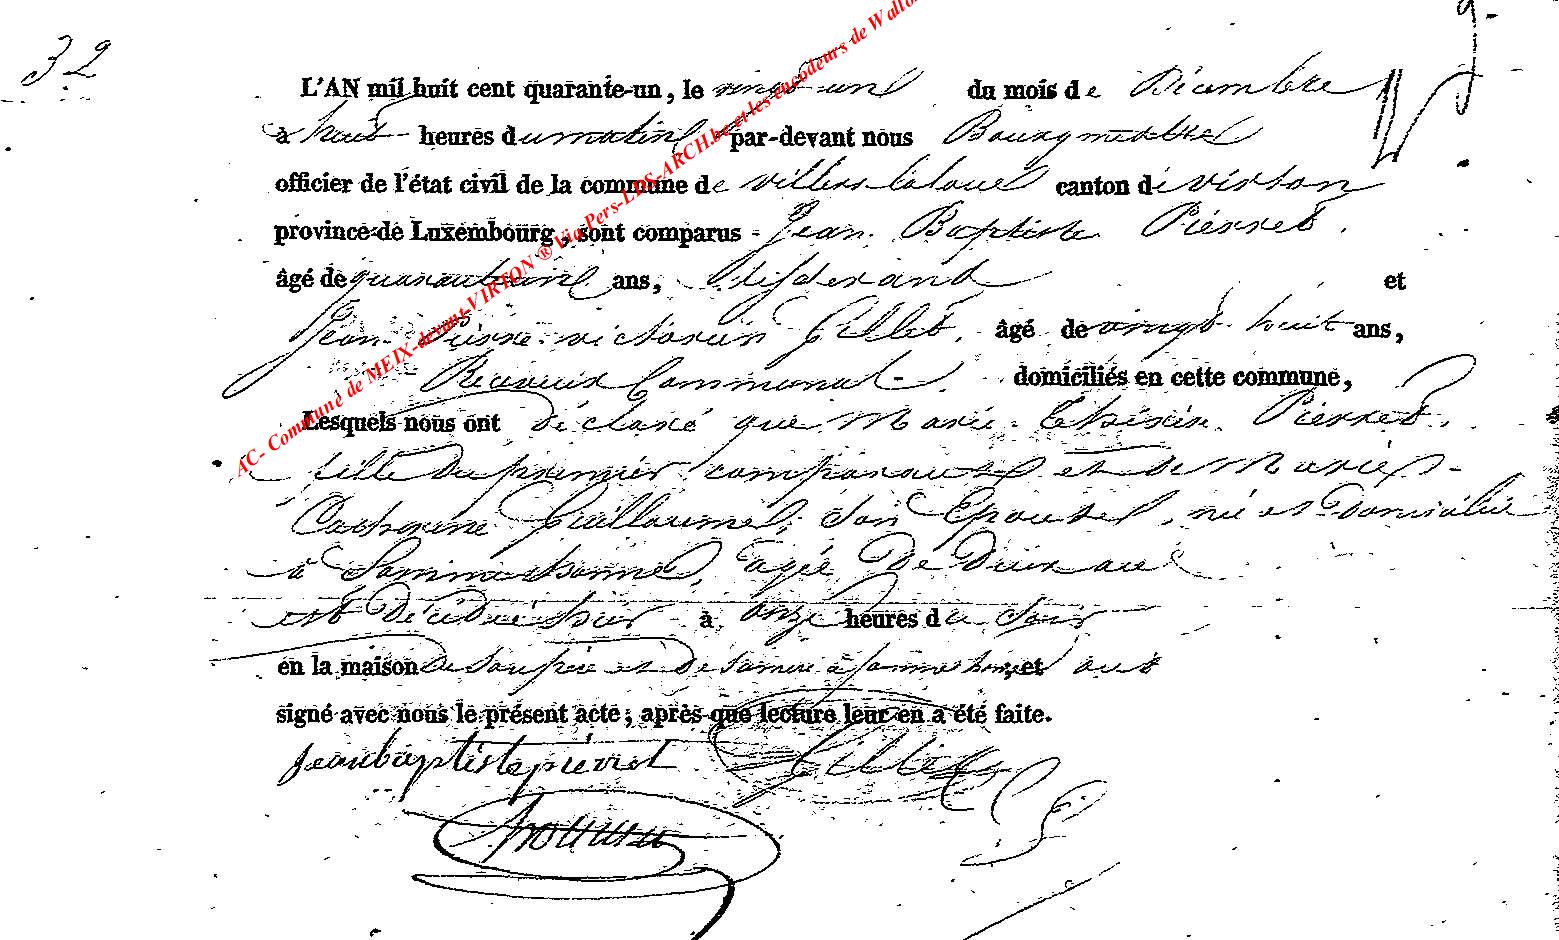 32
9.
L'AN mil huit cent quarante-un, le vingt un du mois de Décembre
à huit heures du matin par-devant nous Bourgmestre
officier de l'état civil de la commune de villers la loue canton de virton
province de Luxembourg, sont comparus Jean Baptiste Pierret.
âgé de quarante ans, et
Jean Pierre victorin Gillet, âgé de vingt huit ans,
Receveur Communal. domiciliés en cette commune,
Lesquels nous ont déclaré que Marie Pierret.
fille du premier comparant et de Marie
Catherine Guillaume, son Epouse, née et Domiciliée
à Sommethonne, agée De Deux ans
est Décédée hier à onze heures du soir
en la maison de son père et de sa mère à sommethonne, et ont
signé avec nous le présent acte, après que lecture leur en a été faite.
jean baptiste pierret Gillet
AC- Commune de MEIX-devant-VIRTON ® Via Pers-LDS-ARCH.be et les encodeurs de Wallo